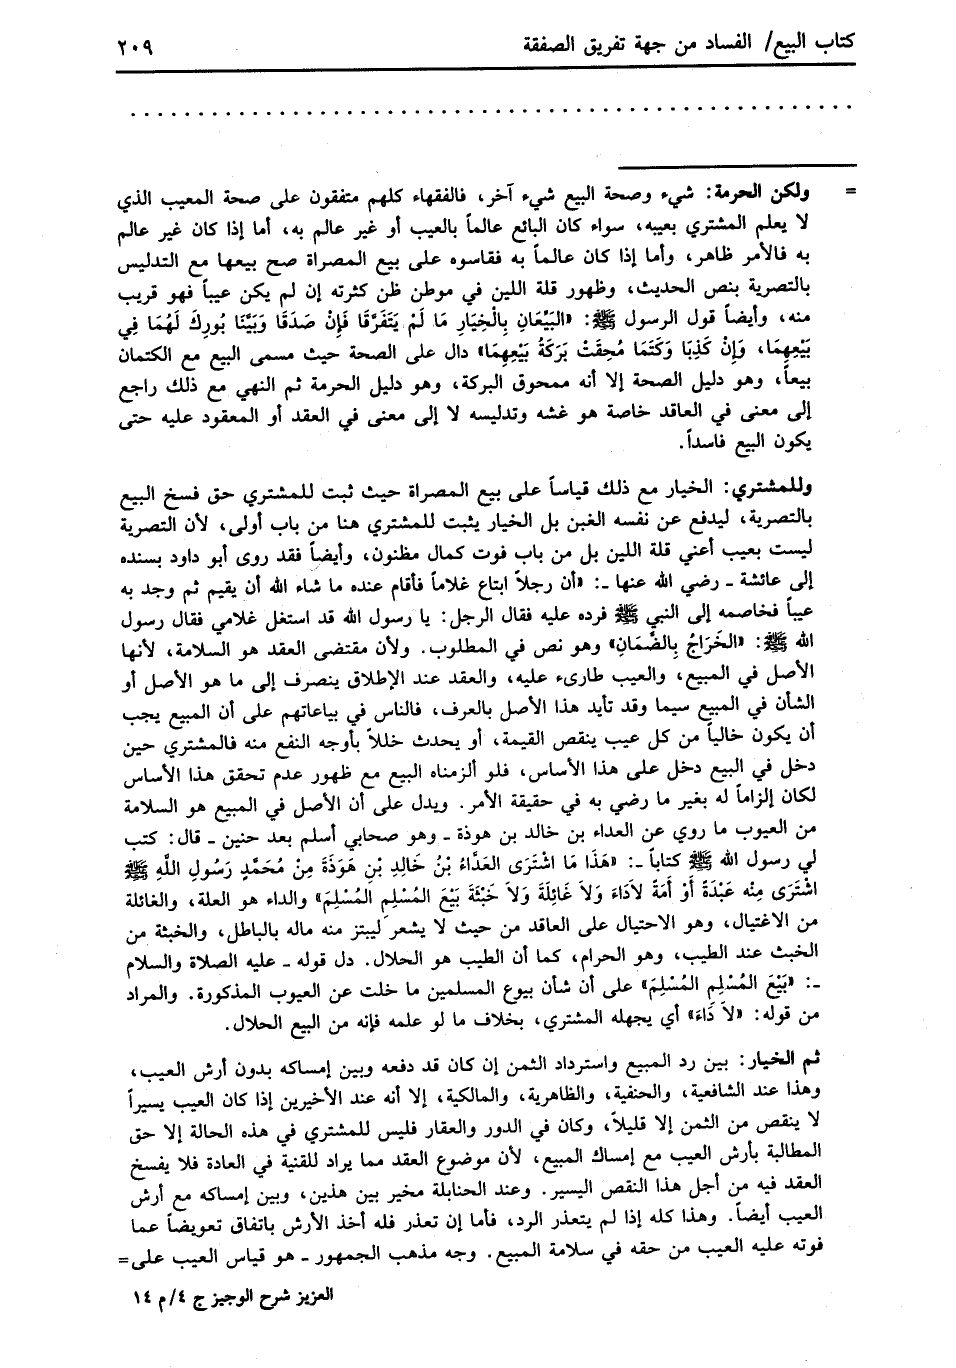 كتاب البيع/ الفساد من جهة تفريق الصفقة ٢٠٩
= ولكن الحرمة: شيء وصحة البيع شيء آخر، فالفقهاء كلهم متفقون على صحة المعيب الذي
لا يعلم المشتري بعيبه، سواء كان البائع عالماً بالعيب أو غير عالم به، أما إذا كان غير عالم
به فالأمر ظاهر، وأما إذا كان عالماً به فقاسوه على بيع المصراة صح بيعها مع التدليس
بالتصرية بنص الحديث، وظهور قلة اللبن في موطن ظن كثرته إن لم يكن عيباً فهو قريب
منه، وأيضاً قول الرسول ﷺ: «البَيْعَانِ بِالْخِيَارِ مَا لَمْ يَتَفَرَّقَا فَإِنْ صَدَقَا وَبَيَّنَا بُورِكَ لَهُمَا فِي
بَيْعِهِمَا، وَإِنْ كَذِبَا وَكَتَمَا مُحِقَتْ بَرَكَةُ بَيْعِهِمَا» دال على الصحة حيث مسمى البيع مع الكتمان
بيعاً، وهو دليل الصحة إلا أنه ممحوق البركة، وهو دليل الحرمة ثم النهي مع ذلك راجع
إلى معنى في العاقد خاصة هو غشه وتدليسه لا إلى معنى في العقد أو المعقود عليه حتى
يكون البيع فاسداً.
وللمشتري: الخيار مع ذلك قياساً على بيع المصراة حيث ثبت للمشتري حق فسخ البيع
بالتصرية، ليدفع عن نفسه الغبن بل الخيار يثبت للمشتري هنا من باب أولى، لأن التصرية
ليست بعيب أعني قلة اللبن بل من باب فوت كمال مظنون، وأيضاً فقد روى أبو داود بسنده
إلى عائشة ـ رضي الله عنها ـ: «أن رجلاً ابتاع غلاماً فأقام عنده ما شاء الله أن يقيم ثم وجد به
عيباً فخاصمه إلى النبي ﷺ فرده عليه فقال الرجل: يا رسول الله قد استغل غلامي فقال رسول
الله ﷺ: «الخَرَاجُ بِالضَّمَانِ» وهو نص في المطلوب. ولأن مقتضى العقد هو السلامة، لأنها
الأصل في المبيع، والعيب طارىء عليه، والعقد عند الإطلاق ينصرف إلى ما هو الأصل أو
الشأن في المبيع سيما وقد تأيد هذا الأصل بالعرف، فالناس في بياعاتهم على أن المبيع يجب
أن يكون خالياً من كل عيب ينقص القيمة، أو يحدث خللاً بأوجه النفع منه فالمشتري حين
دخل في البيع دخل على هذا الأساس، فلو ألزمناه البيع مع ظهور عدم تحقق هذا الأساس
لكان إلزاماً له بغير ما رضي به في حقيقة الأمر. ويدل على أن الأصل في المبيع هو السلامة
من العيوب ما روي عن العداء بن خالد بن هوذة ـ وهو صحابي أسلم بعد حنين ـ قال: كتب
لي رسول الله ﷺ كتاباً ـ: «هَذَا مَا اشْتَرَى العَدَّاءُ بْنُ خَالِدِ بْنِ هَوَذَةَ مِنْ مُحَمَّدٍ رَسُولِ اللَّهِ ﷺ
اشْتَرَى مِنْه عَبْدَةً أَوْ أَمَةً لاَدَاءَ وَلاَ غَائِلَةَ وَلاَ خَبْثَةَ بَيْعَ المُسْلِمِ المُسْلِمَ» والداء هو العلة، والغائلة
من الاغتيال، وهو الاحتيال على العاقد من حيث لا يشعر ليبتز منه ماله بالباطل، والخبثة من
الخبث عند الطيب، وهو الحرام، كما أن الطيب هو الحلال. دل قوله ـ عليه الصلاة والسلام
ـ: «بَيْعَ المُسْلِمِ المُسْلِمَ» على أن شأن بيوع المسلمين ما خلت عن العيوب المذكورة. والمراد
من قوله: «لاَ دَاءَ» أي يجهله المشتري، بخلاف ما لو علمه فإنه من البيع الحلال.
ثم الخيار: بين رد المبيع واسترداد الثمن إن كان قد دفعه وبين إمساكه بدون أرش العيب،
وهذا عند الشافعية، والحنفية، والظاهرية، والمالكية، إلا أنه عند الأخيرين إذا كان العيب يسيراً
لا ينقص من الثمن إلا قليلاً، وكان في الدور والعقار فليس للمشتري في هذه الحالة إلا حق
المطالبة بأرش العيب مع إمساك المبيع، لأن موضوع العقد مما يراد للقنية في العادة فلا يفسخ
العقد فيه من أجل هذا النقص اليسير. وعند الحنابلة مخير بين هذين، وبين إمساكه مع أرش
العيب أيضاً. وهذا كله إذا لم يتعذر الرد، فأما إن تعذر فله أخذ الأرش باتفاق تعويضاً عما
فوته عليه العيب من حقه في سلامة المبيع. وجه مذهب الجمهور ـ هو قياس العيب على=
العزيز شرح الوجيز ج ٤/ م ١٤